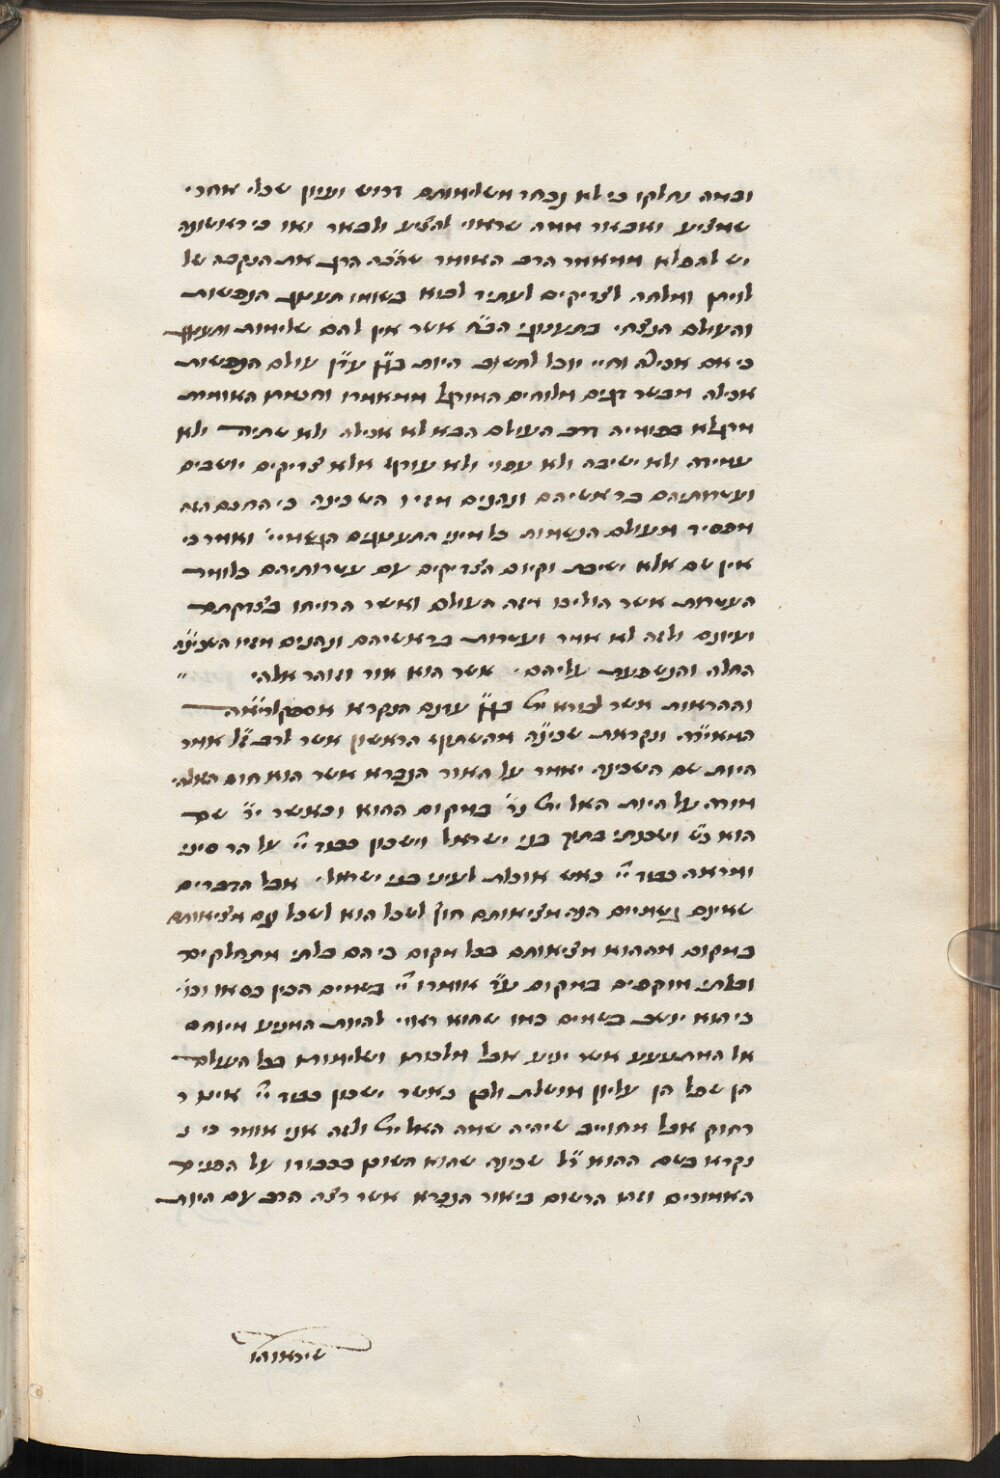 ובמה נחלקו כי לא נכחד משלימותם דרוש ועיון שכלי אחרי
שאציע ואבאר ממה שראוי להציע ולבאר ואו כי ראשונה
יש להפלא ממאמר הרב האומר שהב״ה הרג את הנקבה של
לויתן ומלחה לצדיקים לעתיד לבוא בשומו תענוג הנפשות
והעולם הנצחי בתענוגי הב״ח אשר אין להם שלימות ותענוג
כי אם אכילה וחיי יוכל לחשוב היות בג״ן עד״ן עולם הנפשות
אכילה מבשר דגים מלוחים המורגל ממאמרו וחכמתו האומרת
מרגלא בפומיה דרב העולם הבא לא אכילה ולא שתיה ולא
עמידה ולא ישיבה ולא עפוי ולא עורף אלא צדיקים יושבים
ועטרותיהם בראשיהם ונהנים מזיו השכינה כי החכם הזה
מפסיד מעולם הנשמות כל מיני התענוגים הגשמיי׳ ואמר כי
אין שם אלא ישיבת וקיום הצדיקים עם עטרותיהם כלומר
העטרות אשר הוליכו מזה העולם ואשר הרויחו בצדקתם
ועיונם ולזה לא אמר ועטרות בראשיהם ונהנים מזיו השכינ״ה
החלה והנשפעת עליהם׳ אשר הוא אור וזוהר אלהי
וההראות אשר לבורא ית׳ בג״ן עדנם הנקרא אספקלרי״אה
המאיר״ה ונקראת שכינ״ה מהשתוף הראשון אשר לרב ז״ל אמר
היות שם השכינה יאמר על האור הנברא אשר הוא חום האלהי
מורה על היות האל ית׳ במקום ההוא וכאשר ית׳ שם
הוא כמ״ש ושכנתי בתוך בני ישראל וישכון כבוד י״י על הר סיני
ומראה כבוד י״י כאש אוכלת לעיני בני ישראל׳ אבל הדברים
שאינם גשמיים הנה מציאותם חוץ לשכל הוא לשכל עם מציאותם
במקום מההוא מציאותם בכל מקום כי הם בלתי מתחלקים
ובלתי מוקפים במקום ע״ד אומרו י״י בשמים הכין כסאו וכו׳
כי הוא יושב בשמים כמו שהוא ראוי להיות המניע מיוחס
אל המתנענע אשר יניע אבל מלכותו ושלימותו בכל העולם
הן שפל הן עליון מושלת ולכן כאשר ישכון כבוד י״י אינו ר
רחוק אבל מחוייב שיהיה שמה האל ית׳ ולזה אני אומר כי נ
נקרא בשם ההוא ר״ל שכינה שהוא השוכן בכבודו על הפנים
האמורים וזהו הרשום ביאור הנקרא אשר רצה הרב עם היות
שיראוהו